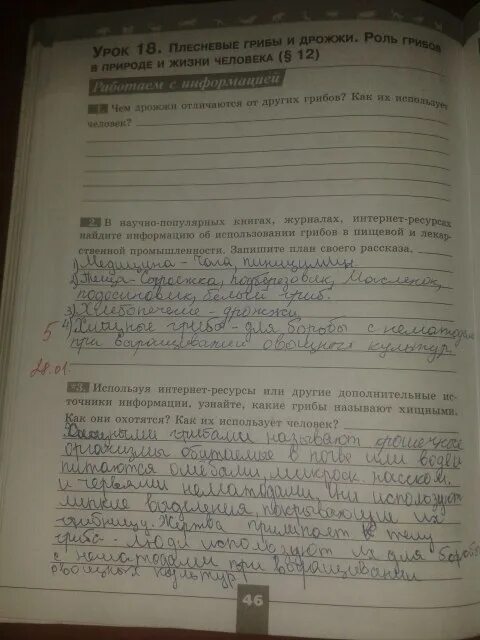 Урок 18. Плесневые грибы и дрожжи. Роль грибов
в природе и жизни человека (§ 12)
Работаем с информацией
1. Чем дрожжи отличаются от других грибов? Как их использует
человек?
2. В научно-популярных книгах, журналах, интернет-ресурсах
найдите информацию об использовании грибов в пищевой и лекар-
ственной промышленности. Запишите план своего рассказа.
1) Медицина - Чага,
2) Пища - подберёзовик, Маслёнок,
подосиновик, белый гриб.
3) Хлебопечение - дрожжи
5 4) Хищные грибы - для борьбы с нематодами
при выращивании овощных культур
28.01.
*3. Используя интернет-ресурсы или другие дополнительные ис-
точники информации, узнайте, какие грибы называют хищными.
Как они охотятся? Как их использует человек?
Хищными грибами называют
организмы обитаемые в почве или воде и
питаются амёбами, микроск. насеком.
и червями нематодами. Они используют
липкие выделения, покрывающие их
грибницу. Жертва прилипает к телу
гриба - люди используют их для борьбы
с нематодами при выращивании
овощных культур
46